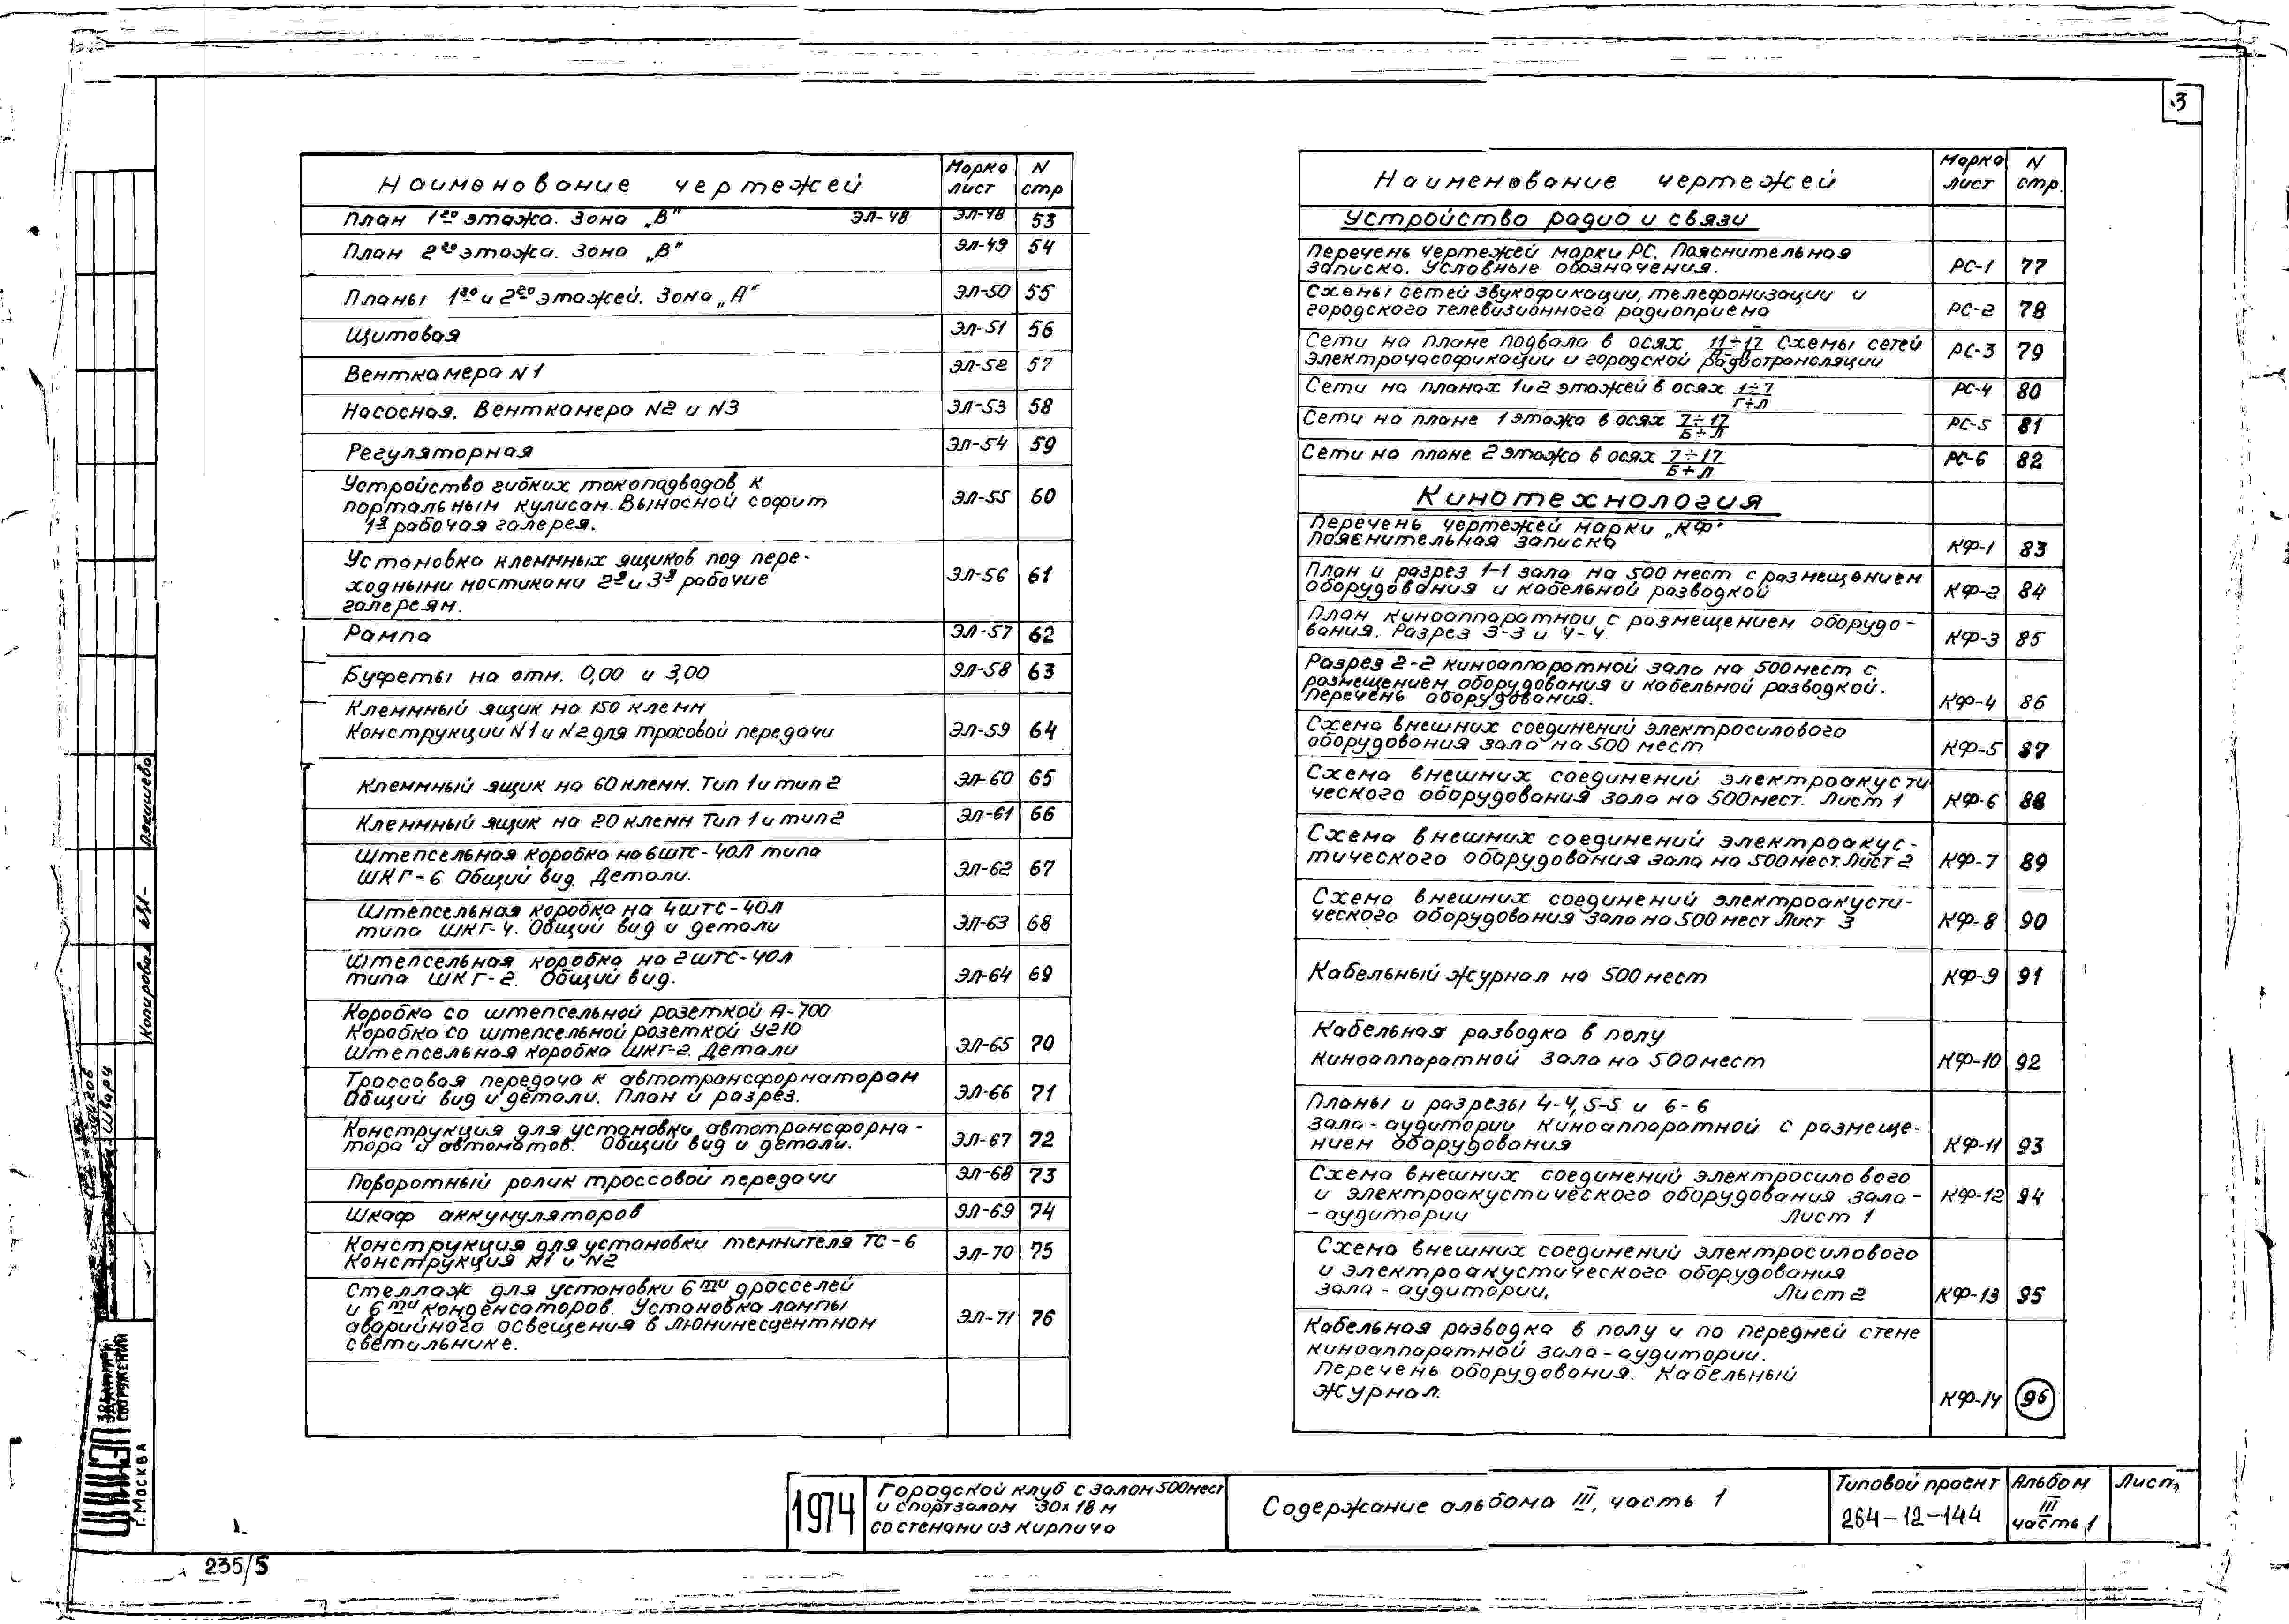 3
Наименование чертежей Марка лист N стр
План 1го этажа. Зона „В" ЭЛ-48 ЭЛ-48 53
План 2го этажа. Зона „В" ЭЛ-49 54
Планы 1го и 2го этажей. Зона „А" ЭЛ-50 55
Щитовая ЭЛ-51 56
Венткамера N1 ЭЛ-52 57
Насосная. Венткамера N2 и N3 ЭЛ-53 58
Регуляторная ЭЛ-54 59
Устройство гибких токоподводов к
портальным кулисам. Выносной софит ЭЛ-55 60
1я рабочая галерея.
Установка клеммных ящиков под пере-
ходными мостиками 2я и 3я рабочие ЭЛ-56 61
галереям.
Рампа ЭЛ-57 62
Буфеты на отм. 0,00 и 3,00 ЭЛ-58 63
Клеммный ящик на 150 клемм
Конструкции N1 и N2 для тросовой передачи ЭЛ-59 64
Клеммный ящик на 60 клемм. Тип 1 и тип 2 ЭЛ-60 65
Клеммный ящик на 20 клемм Тип 1 и тип 2 ЭЛ-61 66
Штепсельная коробка на 6ШТС-40Л типа
ШКГ-6 Общий вид. Детали. ЭЛ-62 67
Штепсельная коробка на 4ШТС-40Л
типа ШКГ-4. Общий вид и детали ЭЛ-63 68
Штепсельная коробка на 2ШТС-40Л
типа ШКГ-2. Общий вид. ЭЛ-64 69
Коробка со штепсельной розеткой А-700
Коробка со штепсельной розеткой У210
Штепсельная коробка ШКГ-2. Детали ЭЛ-65 70
Троссовая передача к автотрансформаторам
Общий вид и детали. План и разрез. ЭЛ-66 71
Конструкция для установки автотрансформа-
тора и автоматов. Общий вид и детали. ЭЛ-67 72
Поворотный ролик троссовой передачи ЭЛ-68 73
Шкаф аккумуляторов ЭЛ-69 74
Конструкция для установки темнителя ТС-6
Конструкция N1 и N2 ЭЛ-70 75
Стеллаж для установки 6ти дросселей
и 6ти конденсаторов. Установка лампы
аварийного освещения в люминесцентном ЭЛ-71 76
светильнике.
Наименование чертежей Марка лист N стр.
Устройство радио и связи
Перечень чертежей марки РС. Пояснительная
записка. Условные обозначения. РС-1 77
Схемы сетей звукофикации, телефонизации и
городского телевизионного радиоприема РС-2 78
Сети на плане подвала в осях 11÷17 Схемы сетей
электрочасофикации и городской радиотрансляции РС-3 79
Сети на планах 1 и 2 этажей в осях 1÷7 РС-4 80
Г÷Л
Сети на плане 1 этажа в осях 7÷17 РС-5 81
Б÷Л
Сети на плане 2 этажа в осях 7÷17 РС-6 82
Б÷Л
Кинотехнология
Перечень чертежей марки „КФ"
Пояснительная записка КФ-1 83
План и разрез 1-1 зала на 500 мест с размещением
оборудования и кабельной разводкой КФ-2 84
План киноаппаратной с размещением оборудо-
вания. Разрез 3-3 и 4-4. КФ-3 85
Разрез 2-2 киноаппаратной зала на 500 мест с
размещением оборудования и кабельной разводкой.
Перечень оборудования. КФ-4 86
Схема внешних соединений электросилового
оборудования зала на 500 мест КФ-5 87
Схема внешних соединений электроакусти-
ческого оборудования зала на 500 мест. Лист 1 КФ-6 88
Схема внешних соединений электроакус-
тического оборудования зала на 500 мест. Лист 2 КФ-7 89
Схема внешних соединений электроакусти-
ческого оборудования зала на 500 мест Лист 3 КФ-8 90
Кабельный журнал на 500 мест КФ-9 91
Кабельная разводка в полу
киноаппаратной зала на 500 мест КФ-10 92
Планы и разрезы 4-4, 5-5 и 6-6
зала-аудитории киноаппаратной с размеще-
нием оборудования КФ-11 93
Схема внешних соединений электросилового
и электроакустического оборудования зала- КФ-12 94
-аудитории Лист 1
Схема внешних соединений электросилового
и электроакустического оборудования
зала-аудитории. Лист 2 КФ-13 95
Кабельная разводка в полу и по передней стене
киноаппаратной зала-аудитории.
Перечень оборудования. Кабельный
журнал. КФ-14 96
1974
Городской клуб с залом 500 мест
и спортзалом 30х18 м
со стенами из кирпича
Содержание альбома III, часть 1
Типовой проект
264-12-144
Альбом
III
часть 1
Лист
Копировал
Шварц
сооружений
г. Москва
235/5